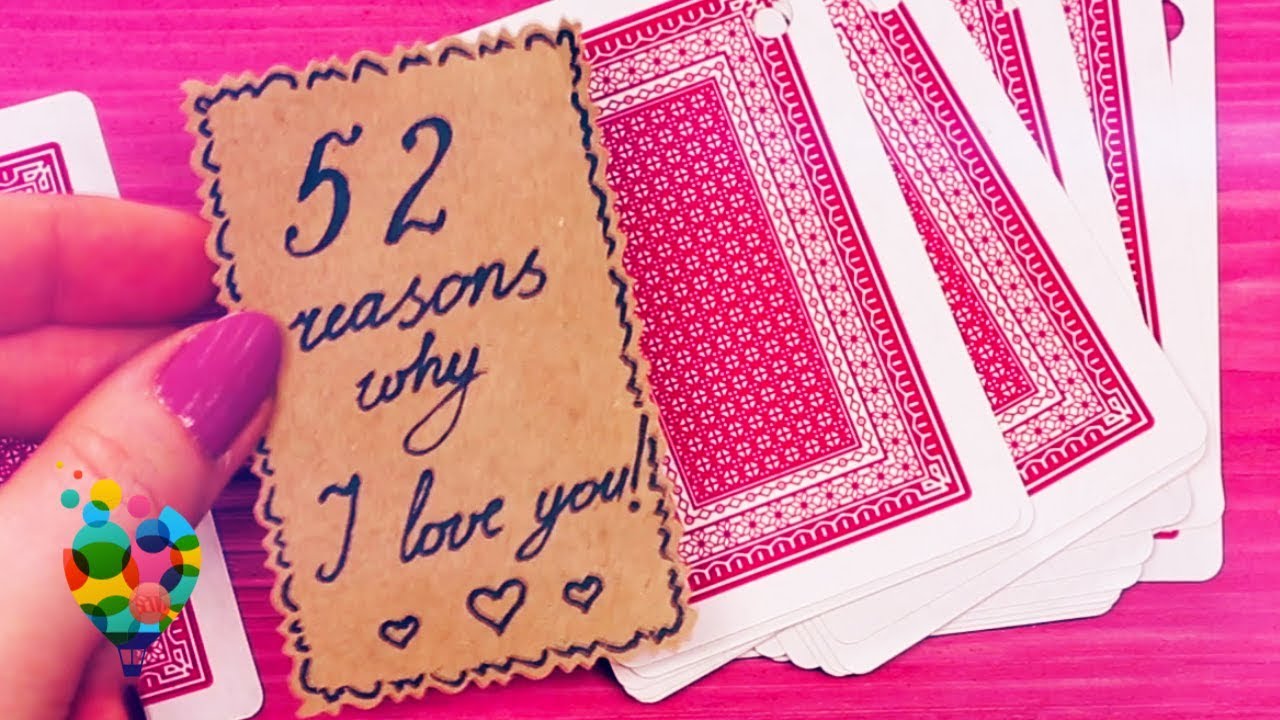 52
reasons
why
I love you!